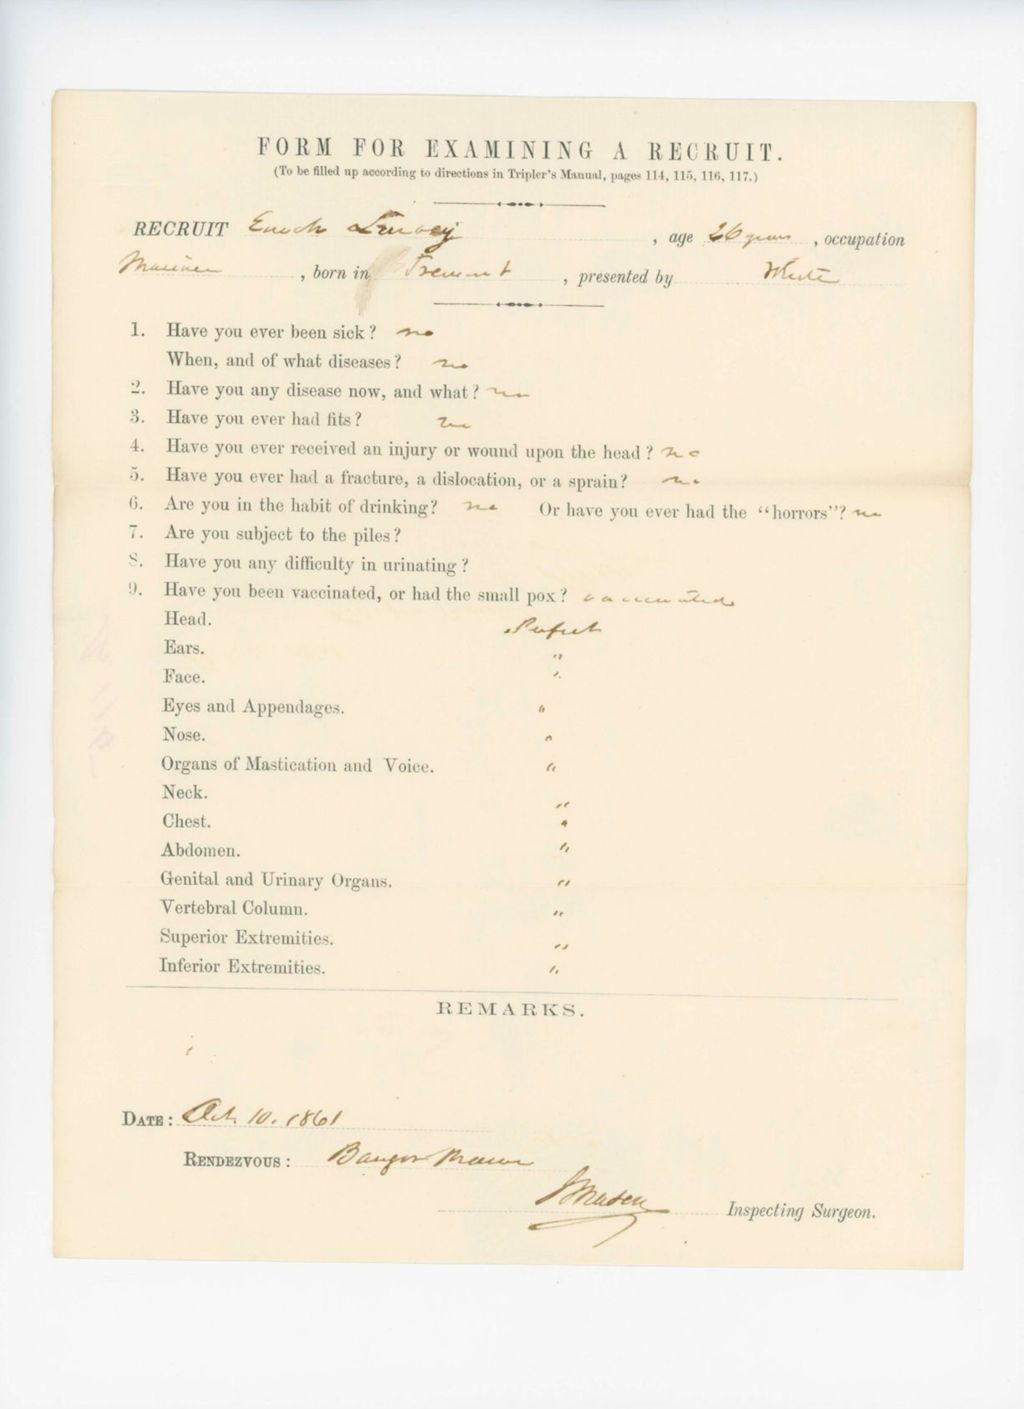 FORM FOR EXAMINING A RECRUIT.
(To be filled up according to directions in Tripler's Manual, pages 114, 115, 116, 117.)
RECRUIT Enoch , age 26 years , occupation
Mariner , born in Tremont , presented by White
1. Have you ever been sick? no
When, and of what diseases? no
2. Have you any disease now, and what? no
3. Have you ever had fits? no
4. Have you ever received an injury or wound upon the head? no
5. Have you ever had a fracture, a dislocation, or a sprain? no
6. Are you in the habit of drinking? no Or have you ever had the "horrors"? no
7. Are you subject to the piles?
8. Have you any difficulty in urinating?
9. Have you been vaccinated, or had the small pox? vaccinated
Head. Perfect
Ears. "
Face. "
Eyes and Appendages. "
Nose. "
Organs of Mastication and Voice. "
Neck. "
Chest. "
Abdomen. "
Genital and Urinary Organs. "
Vertebral Column. "
Superior Extremities. "
Inferior Extremities. "
REMARKS.
DATE: Oct. 10. 1861
RENDEZVOUS: Bangor Maine
Inspecting Surgeon.